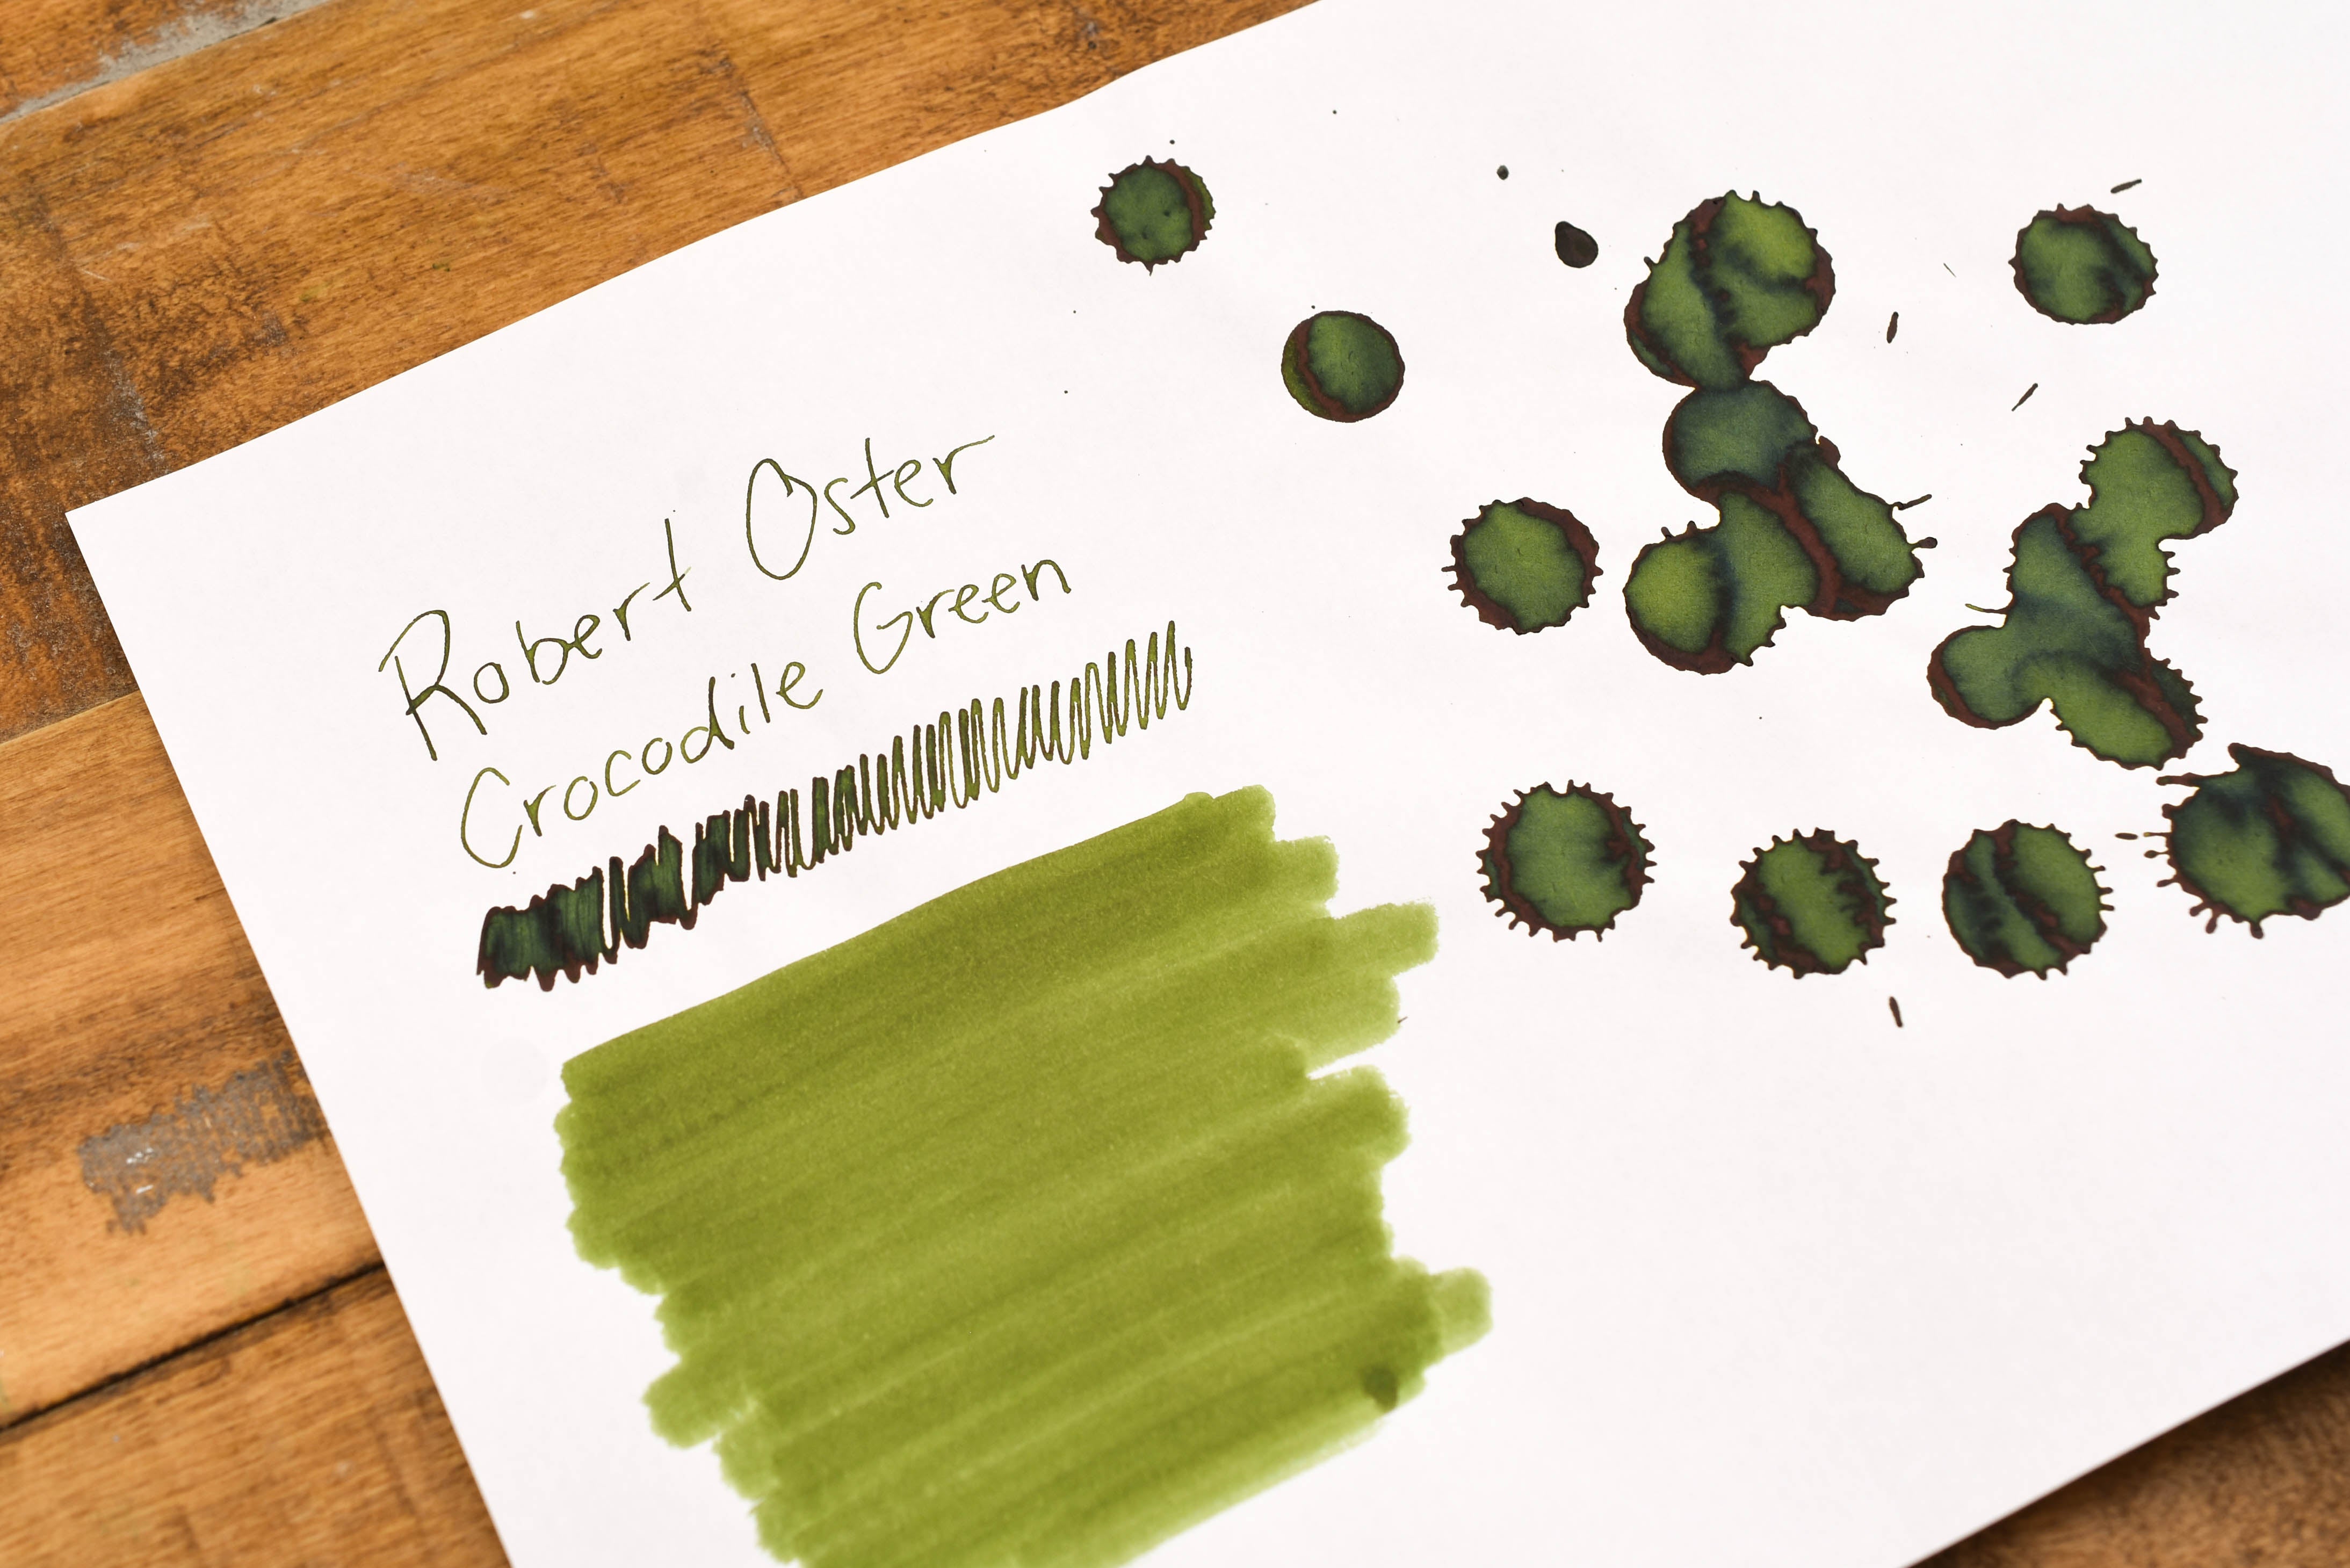 Robert Oster
Crocodile Green